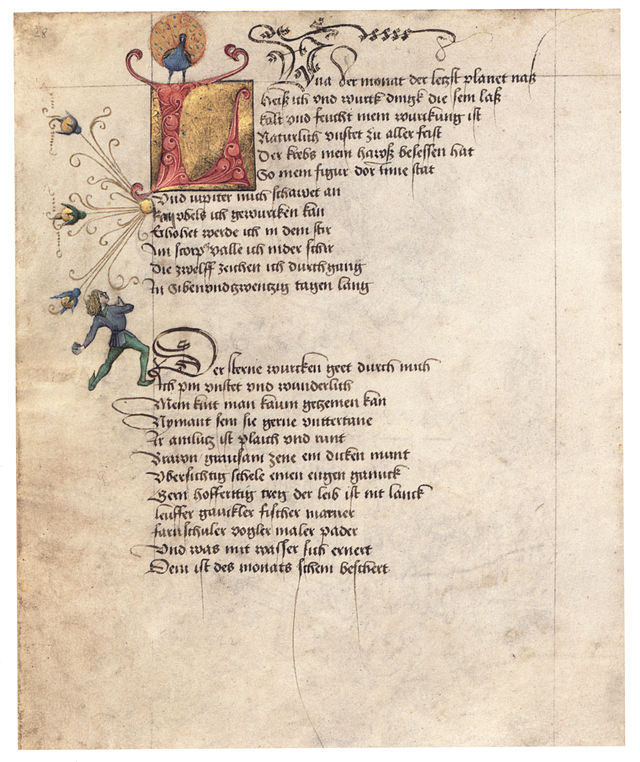 Luna der monat der letzst planet naß
Heiß ich vnd wurck dingk die sein laß
kalt vnd feucht mein wurckung ist
Naturlich vnstet zu aller frist
Der krebs mein hawß besessen hat
So mein figur dor inne stat
Vnd iupiter mich schawet an
kain vbels ich gewurcken kan
Erhohet werde ich in dem stir
Im scorp valle ich nider schir
Die zwelff zeichen ich durchgang
In Sibenvndzwentzig tagen lang
Der sterne wurcken geet durch mich
Ich pin vnstet vnd wunderlich
Mein kint man kaum gezemen kan
Nymant sein sie gerne vnttertane
Ir antlutz ist plaich vnd runt
Brawn grausam zene ein dicken munt
Vbersichtig schele einen engen ganck
Gern hofferttig treg der leib ist nit lanck
leuffer gauckler fischer marner
farnschuler vogler maler pader
Vnd was mit wasser sich ernert
Dem ist des monats schein beschert